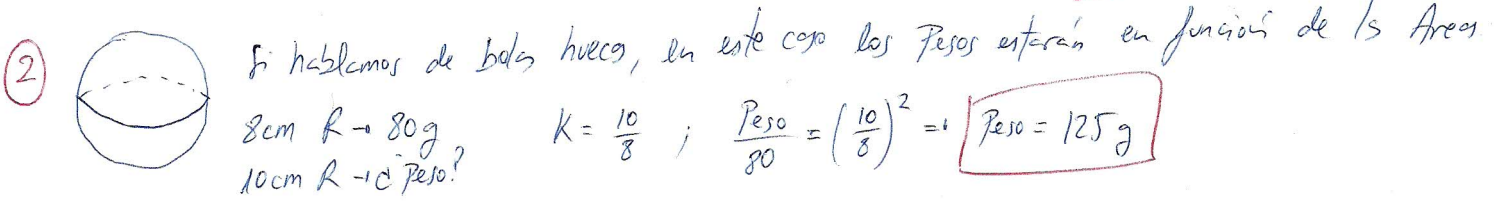 2
Si hablamos de bola hueca, en este caso los Pesos estarán en función de ls Areas
8cm R → 80g K = 10/8 ; Peso/80 = (10/8)² => Peso = 125g
10cm R → ¿Peso?